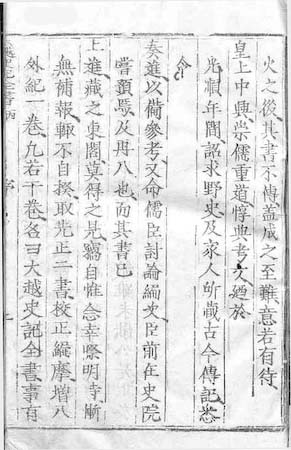 火之後其書不傳蓋成之至難意若有待
皇上中興崇儒重道惇典考文廼於
光順年間詔求野史及家人所藏古今傳記悉
令
奏進以備參考又命儒臣討論編次臣前在史院
嘗預焉及再入也而其書已
上進藏之東閣莫得之見竊自惟念幸際明時慚
無補報輒不自揆取先正二書校正編摩增入
外紀一卷凡若干卷名曰大越史記全書事有